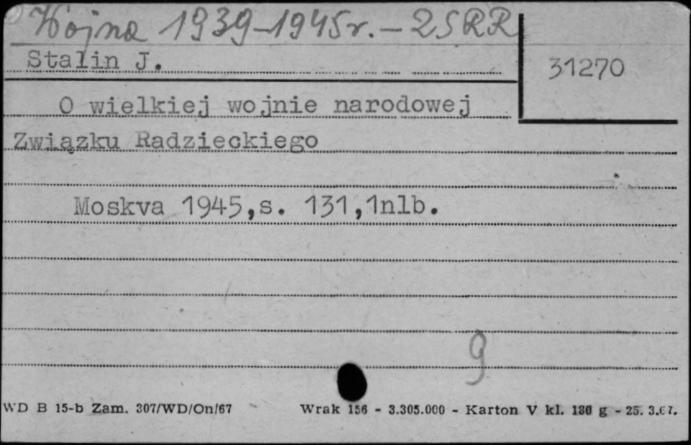 Wojna 1939-1945r. - ZSRR
Stalin J.
31270
O wielkiej wojnie narodowej
Związku Radzieckiego
Moskva 1945,s. 131,1nlb.
9
WD B 15-b Zam. 307/WD/On/67 Wrak 156 - 3.305.000 - Karton V kl. 180 g - 25. 3.67.